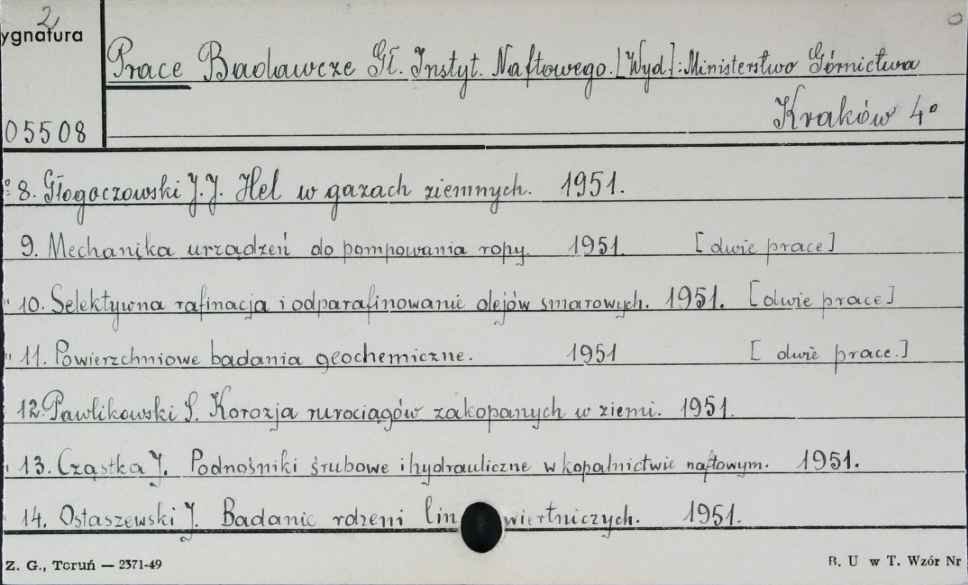 2
ygnatura
Prace Badawcze Gł. Instyt. Naftowego. [Wyd]: Ministerstwo Górnictwa
Kraków 4°
05508
8. Głogoczowski J.J. Hel w gazach ziemnych. 1951.
9. Mechanika urządzeń do pompowania ropy. 1951. [dwie prace]
" 10. Selektywna rafinacja i odparafinowanie olejów smarowych. 1951. [dwie prace]
" 11. Powierzchniowe badania geochemiczne. 1951 [dwie prace.]
12. Pawlikowski S. Korozja rurociągów zakopanych w ziemi. 1951.
13. Cząstka J. Podnośniki śrubowe i hydrauliczne w kopalnictwie naftowym. 1951.
14. Ostaszewski J. Badanie rdzeni lin wiertniczych. 1951.
Z. G., Toruń — 2371-49
B. U w T. Wzór Nr